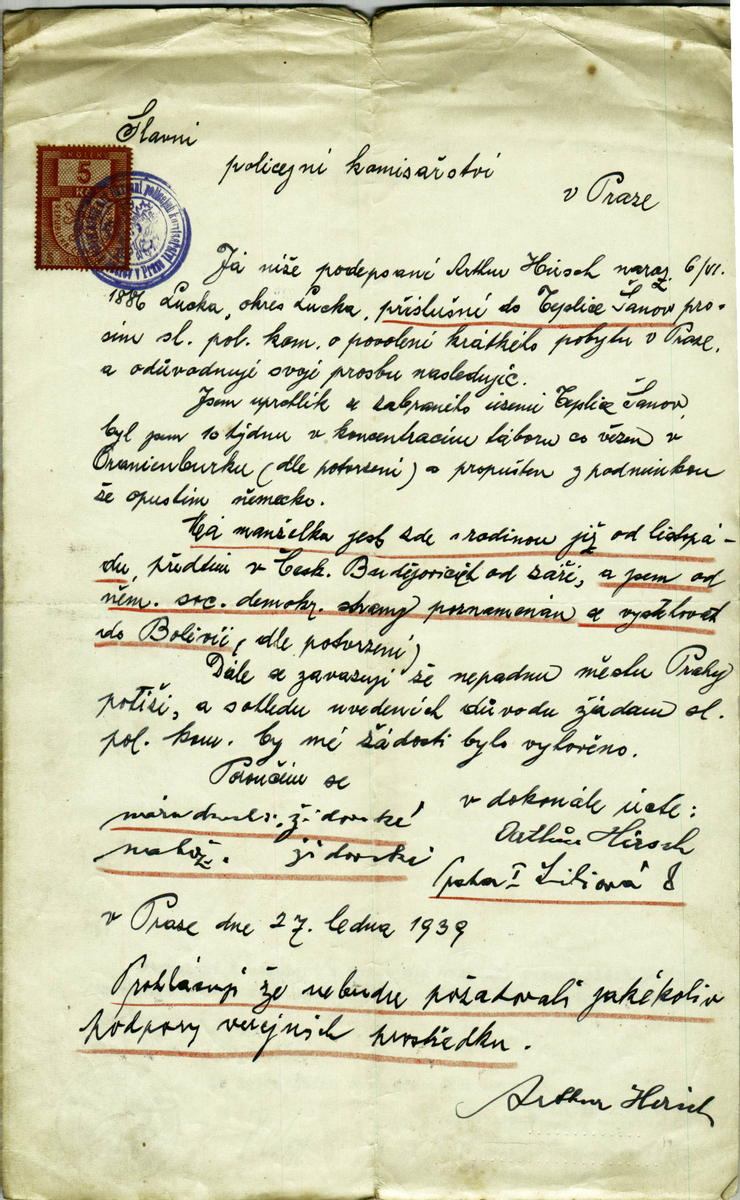 Slavní
policejní komisařství
v Praze
KOLEK
5
Kč
Já níže podepsaní Arthur Hirsch naroz. 6/VI.
1886 Lucka, okres Lucka, příslušné do Teplice Šanov pro-
sim sl. pol. kom. o povoleni krátkého pobytu v Praze,
a odůvodnuji svojí prosbu nasledujíc.
Jsem uprchlik ze zabraného územi Teplice Šanov,
byl jsem 10 týdnu v koncentracim táboru co vězen v
Oranienburku (dle potvrzeni) a propuštěn z podminkou
že opustim německo.
Má manželka jest zde s rodinou již od listpá-
du, předtim v Česk. Budějovicích od záři, a jsem od
něm. soc. demokr. strany poznamenán se vystěhovat
do Bolivii, (dle potvrzení)
Dále se zavazuji že nepadnu městu Prahy
potiži, a sohledu uvedenich důvodu žádam sl.
pol. kom. by mé žádosti bylo vyhověno.
Poroučim se
v dokonále úctě:
národnosti: židovské
Arthur Hirsch
nábož. židovské
Praha I Liliová 8
v Praze dne 27. ledna 1939
Prohlašuji že nebudu požadovati jakékoliv
podpory veřejnich prostředku.
Arthur Hirsch